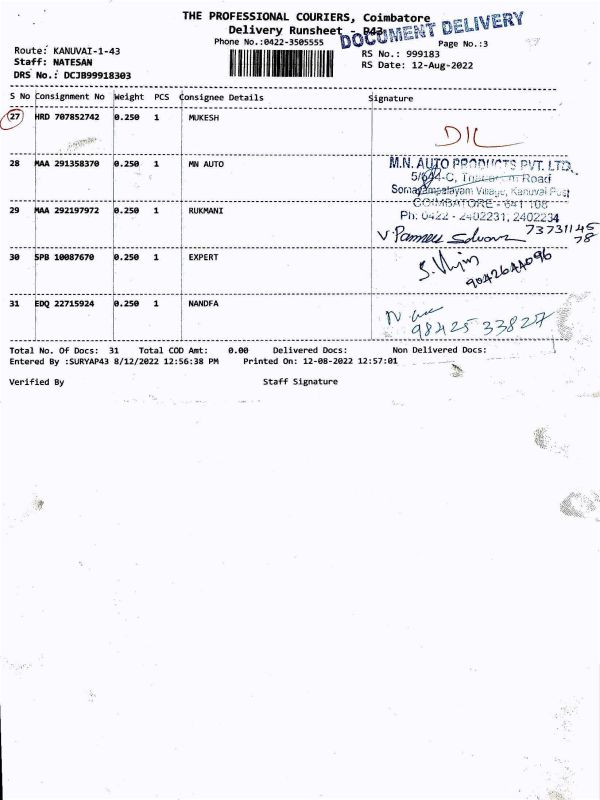 THE PROFESSIONAL COURIERS, Coimbatore
Delivery Runsheet - P43
DOCUMENT DELIVERY
Phone No.:0422-3505555
Page No.:3
Route: KANUVAI-1-43
Staff: NATESAN
DRS No.: DCJB99918303
RS No.: 999183
RS Date: 12-Aug-2022
S No Consignment No Weight PCS Consignee Details Signature
27 HRD 707852742 0.250 1 MUKESH
D/L
28 MAA 291358370 0.250 1 MN AUTO
M.N. AUTO PRODUCTS PVT. LTD.
5/694-C, Road
Somayampalayam Village, Kanuvai Post
COIMBATORE - 641 108
Ph: 0422 - 2402231, 2402234
29 MAA 292197972 0.250 1 RUKMANI
73731145
78
30 SPB 10087670 0.250 1 EXPERT
9042644096
31 EDQ 22715924 0.250 1 NANDFA
98425 33827
Total No. Of Docs: 31 Total COD Amt: 0.00 Delivered Docs: Non Delivered Docs:
Entered By :SURYAP43 8/12/2022 12:56:38 PM Printed On: 12-08-2022 12:57:01
Verified By Staff Signature